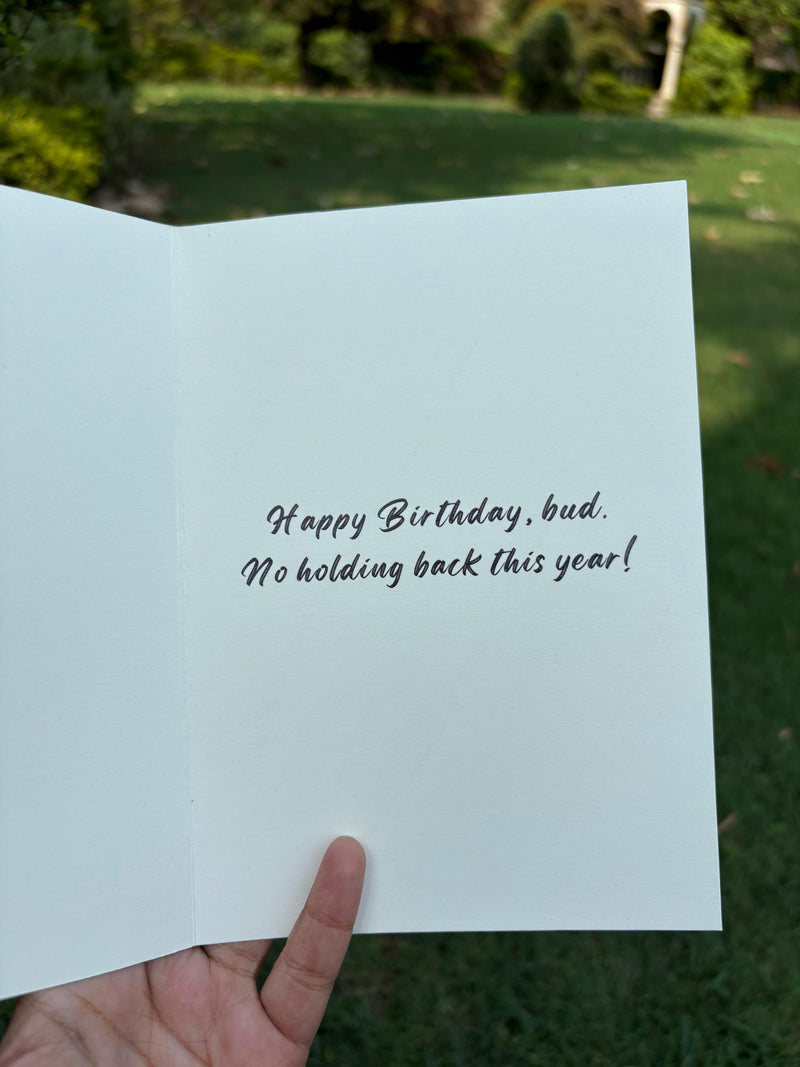 Happy Birthday, bud.
No holding back this year!